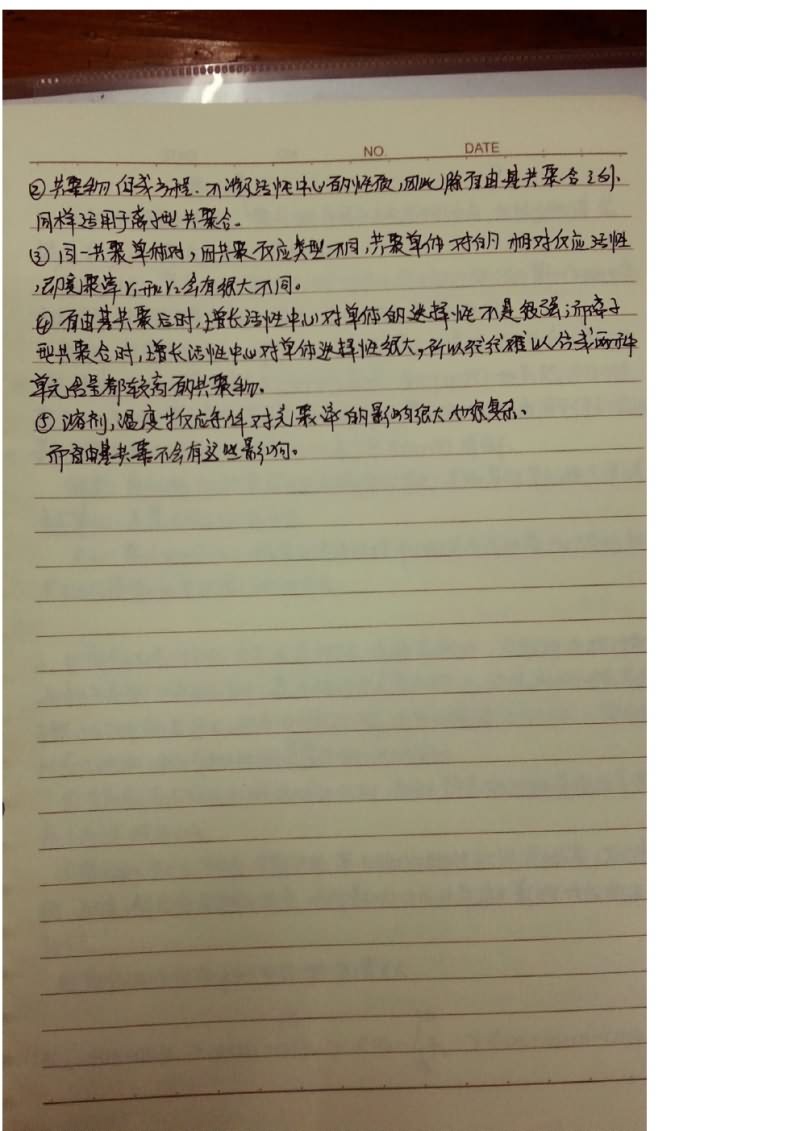 NO. DATE
②共聚物组成方程.不涉及活性中心的性质,因此,除自由基共聚合之外、
同样适用于离子型共聚合。
③,同一共聚单体对,因共聚反应类型不同,共聚单体对的相对反应活性
,即竞聚率r₁和r₂会有很大不同。
④自由基共聚合时,增长活性中心对单体的选择性不是很强;而离子
型共聚合时,增长活性中心对单体选择性很大,所以往往难以合成两种
单元含量都较高的共聚物.
⑤溶剂,温度等反应条件对竞聚率的影响很大也很复杂.
而自由基共聚不会有这些影响。